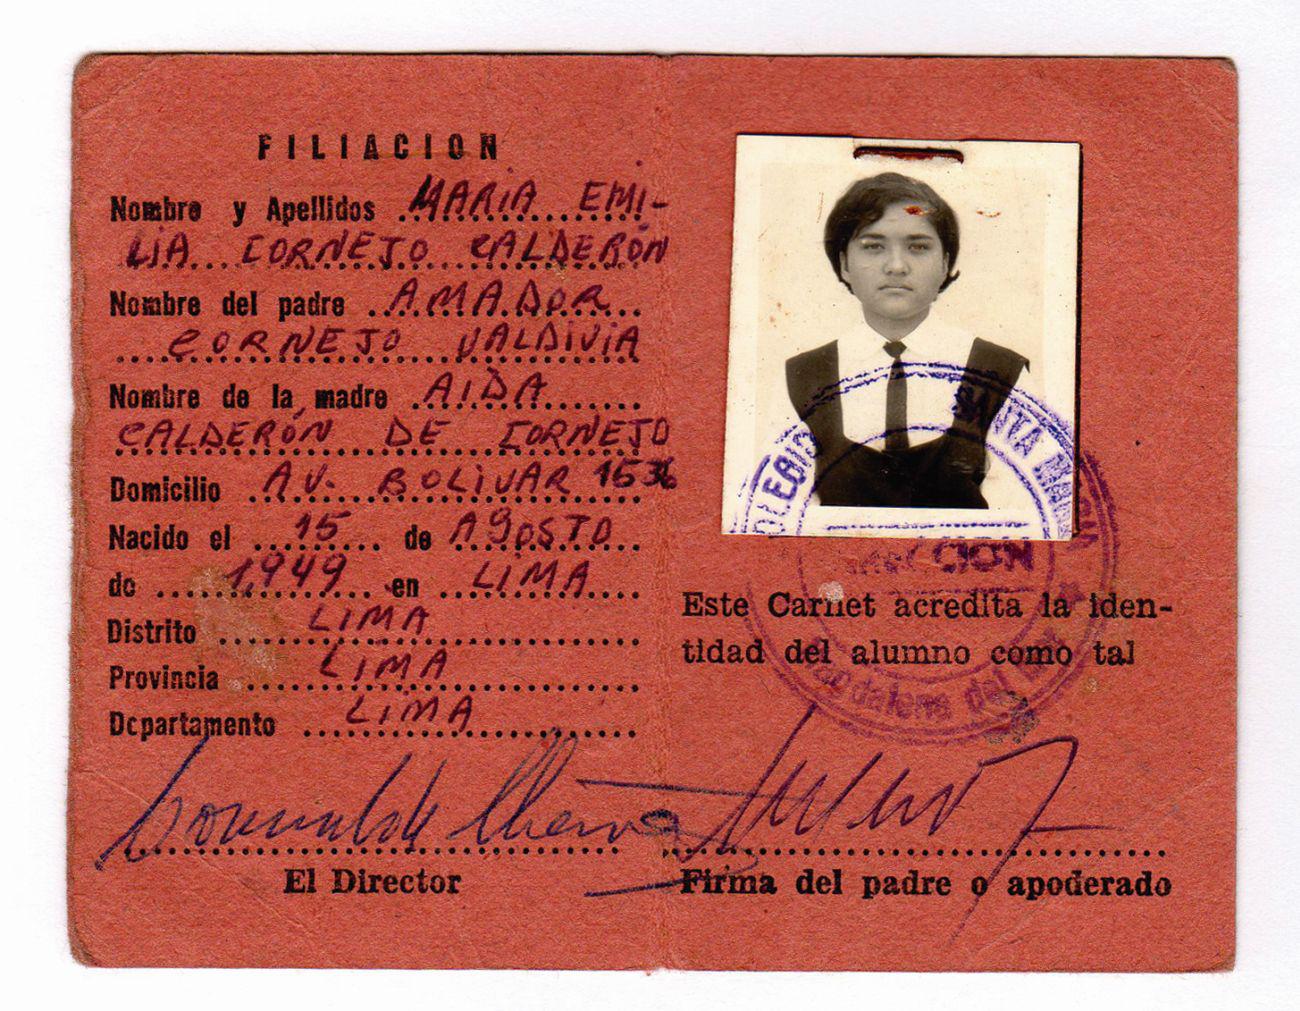 FILIACION
Nombre y Apellidos MARIA EMI-
LIA CORNEJO CALDERÓN
Nombre del padre AMADOR
CORNEJO VALDIVIA
Nombre de la madre AIDA
CALDERÓN DE CORNEJO
Domicilio AV. BOLIVAR 1536
Nacido el 15 de AGOSTO
de 1,949 en LIMA
Distrito LIMA
Provincia LIMA
Departamento LIMA
El Director
COLEGIO SANTA MARIA
DIRECCION
Magdalena del Mar
Este Carnet acredita la iden-
tidad del alumno como tal
Firma del padre o apoderado